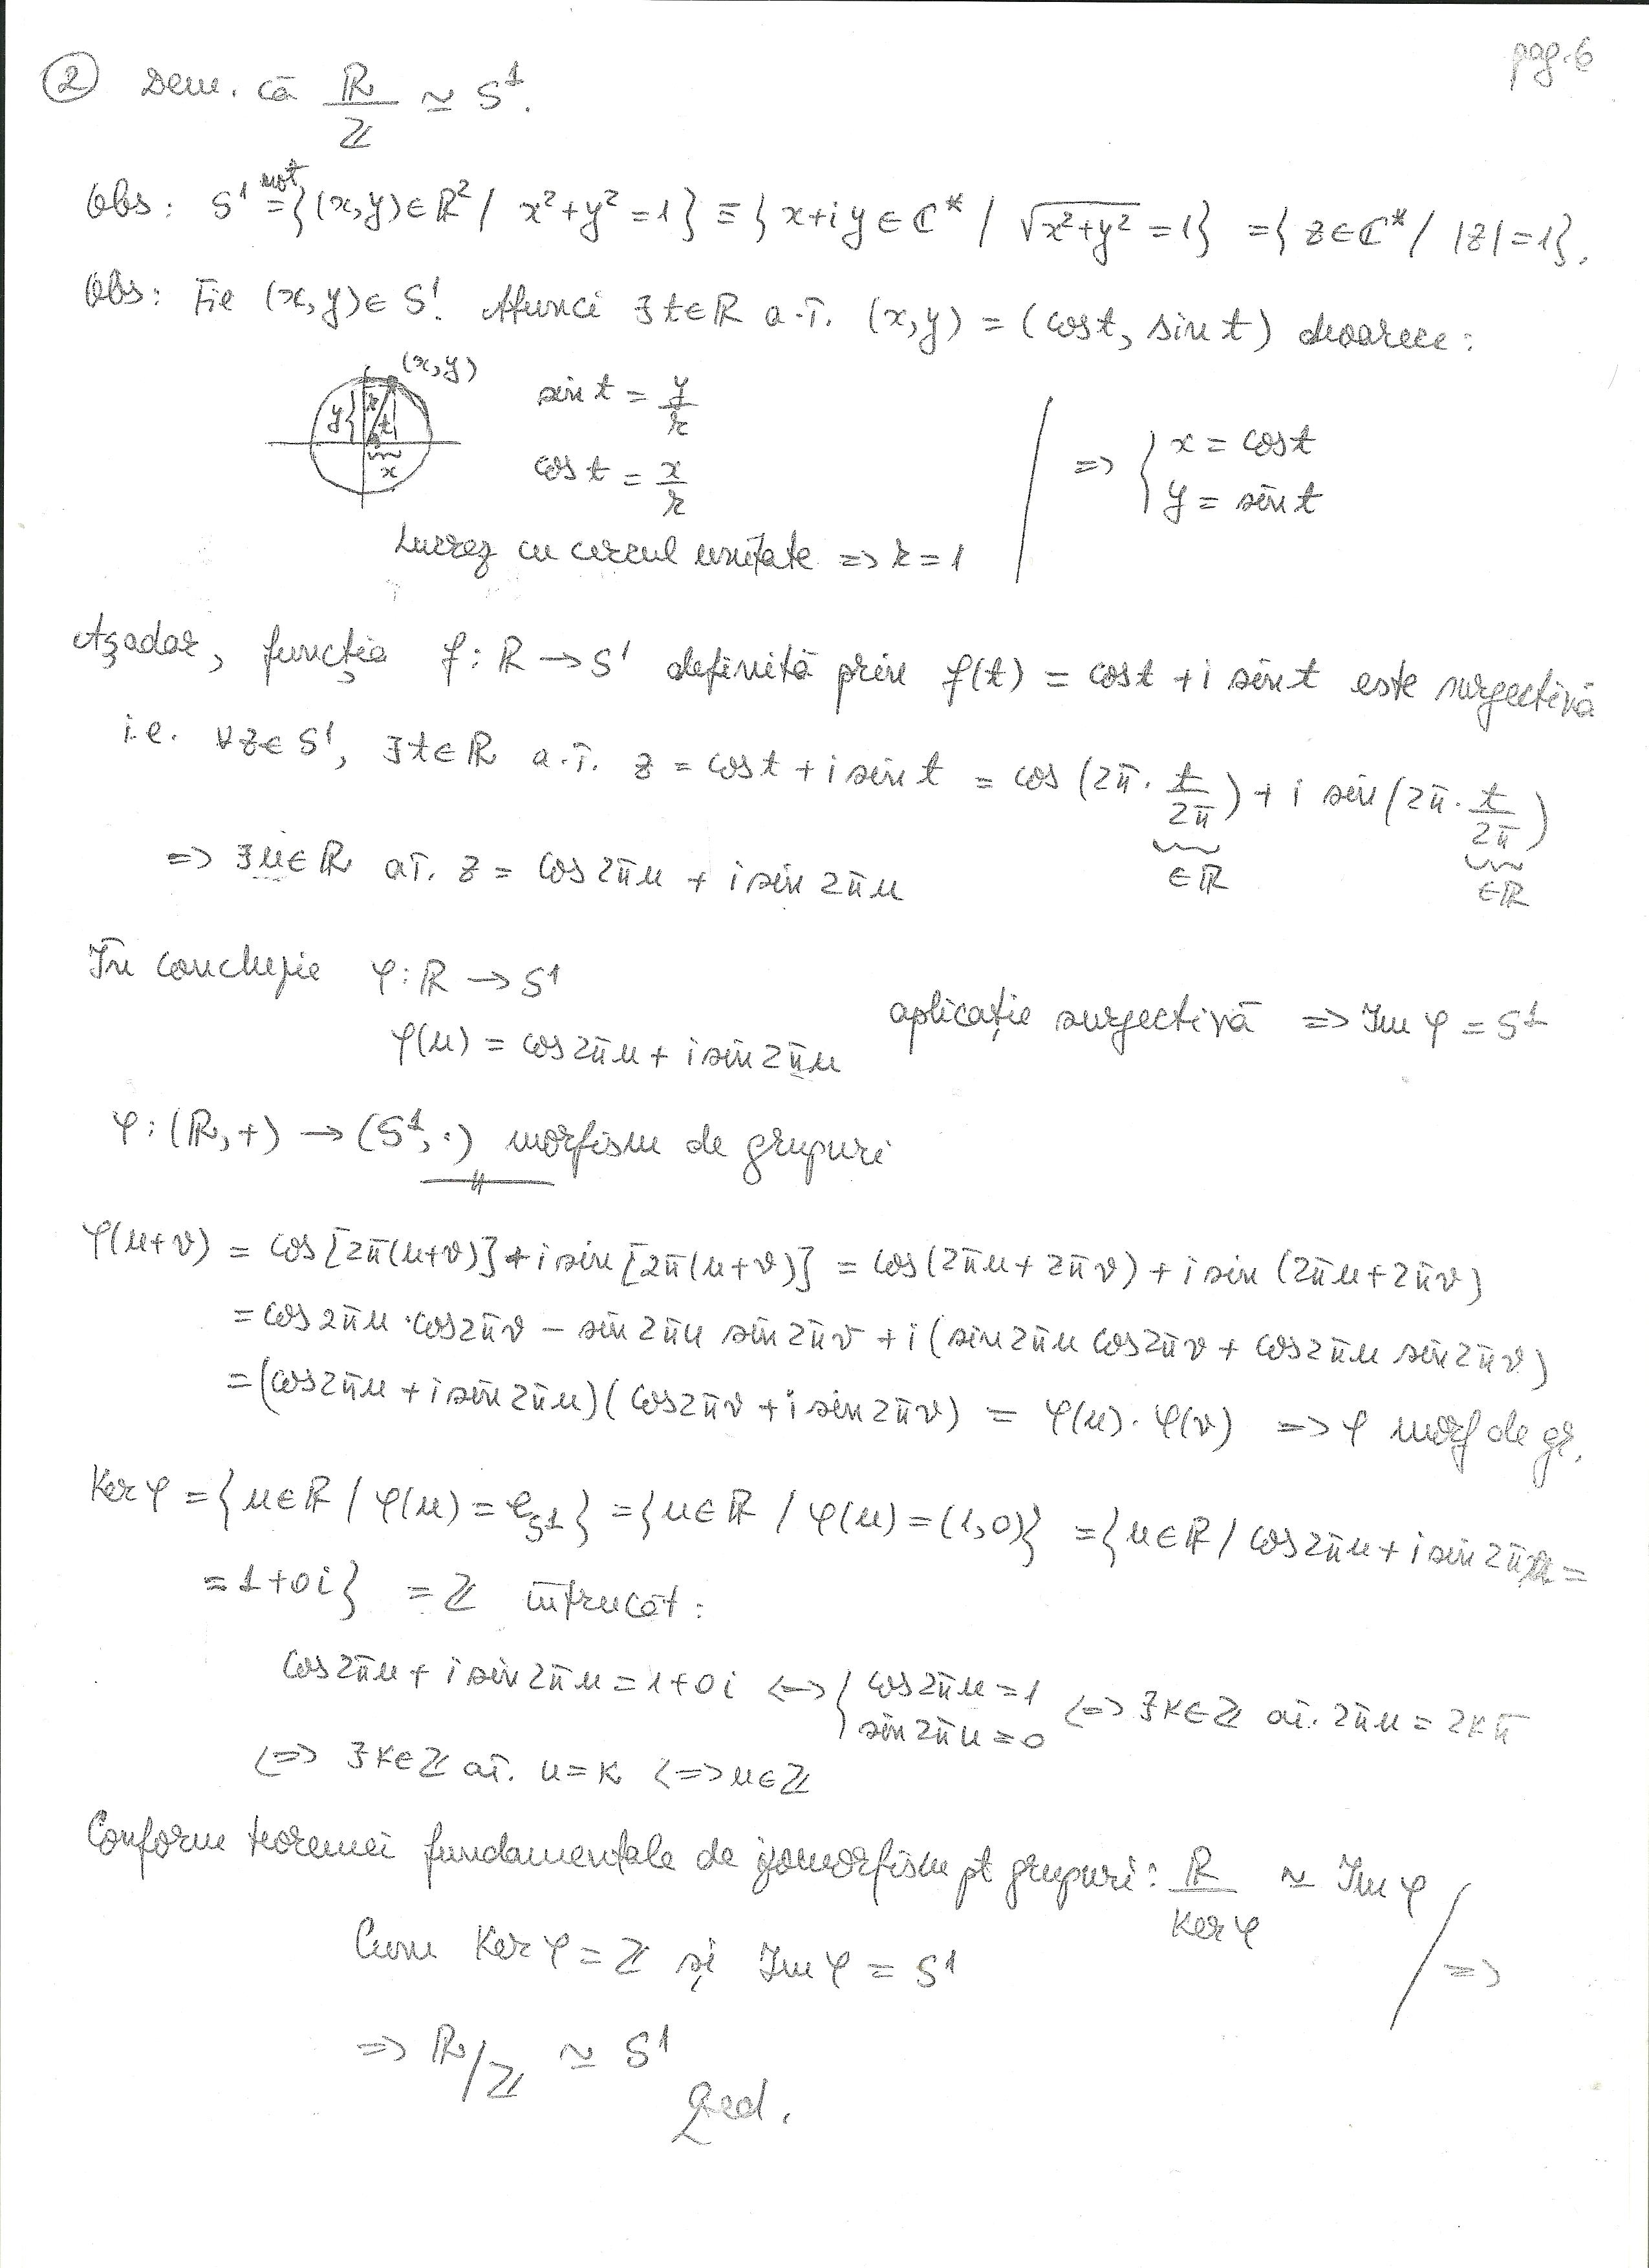 pag. 6
② Dem. că ℝ/ℤ ≃ S¹.
Obs: S¹ not= {(x,y)∈ℝ² / x²+y²=1} ≡ {x+iy∈ℂ* / √(x²+y²) = 1} = {z∈ℂ* / |z|=1}.
Obs: Fie (x,y)∈S¹. Atunci ∃t∈ℝ a.î. (x,y) = (cos t, sin t) deoarece:
(x,y)
y r t
x
sin t = y/r
cos t = x/r
Lucrez cu cercul unitate => r=1
=> { x = cos t
y = sin t
Așadar, funcția f: ℝ → S¹ definită prin f(t) = cos t + i sin t este surjectivă
i.e. ∀z∈S¹, ∃t∈ℝ a.î. z = cos t + i sin t = cos(2π · t/2π) + i sin(2π · t/2π)
∈ℝ ∈ℝ
=> ∃u∈ℝ aî. z = cos 2πu + i sin 2πu
În concluzie φ: ℝ → S¹
φ(u) = cos 2πu + i sin 2πu
aplicație surjectivă => Im φ = S¹
φ: (ℝ,+) → (S¹,·) morfism de grupuri
φ(u+v) = cos[2π(u+v)] + i sin[2π(u+v)] = cos(2πu + 2πv) + i sin(2πu + 2πv)
= cos 2πu · cos 2πv − sin 2πu sin 2πv + i(sin 2πu cos 2πv + cos 2πu sin 2πv)
= (cos 2πu + i sin 2πu)(cos 2πv + i sin 2πv) = φ(u) · φ(v) => φ morf de gr.
Ker φ = {u∈ℝ / φ(u) = e_S¹} = {u∈ℝ / φ(u) = (1,0)} = {u∈ℝ / cos 2πu + i sin 2πu =
= 1+0i} = ℤ întrucât:
cos 2πu + i sin 2πu = 1+0i <=> { cos 2πu = 1
sin 2πu = 0 <=> ∃k∈ℤ aî. 2πu = 2kπ
<=> ∃k∈ℤ aî. u=k <=> u∈ℤ
Conform teoremei fundamentale de izomorfism pt grupuri: ℝ/Ker φ ≃ Im φ
Cum Ker φ = ℤ și Im φ = S¹ =>
=> ℝ/ℤ ≃ S¹
Qed.